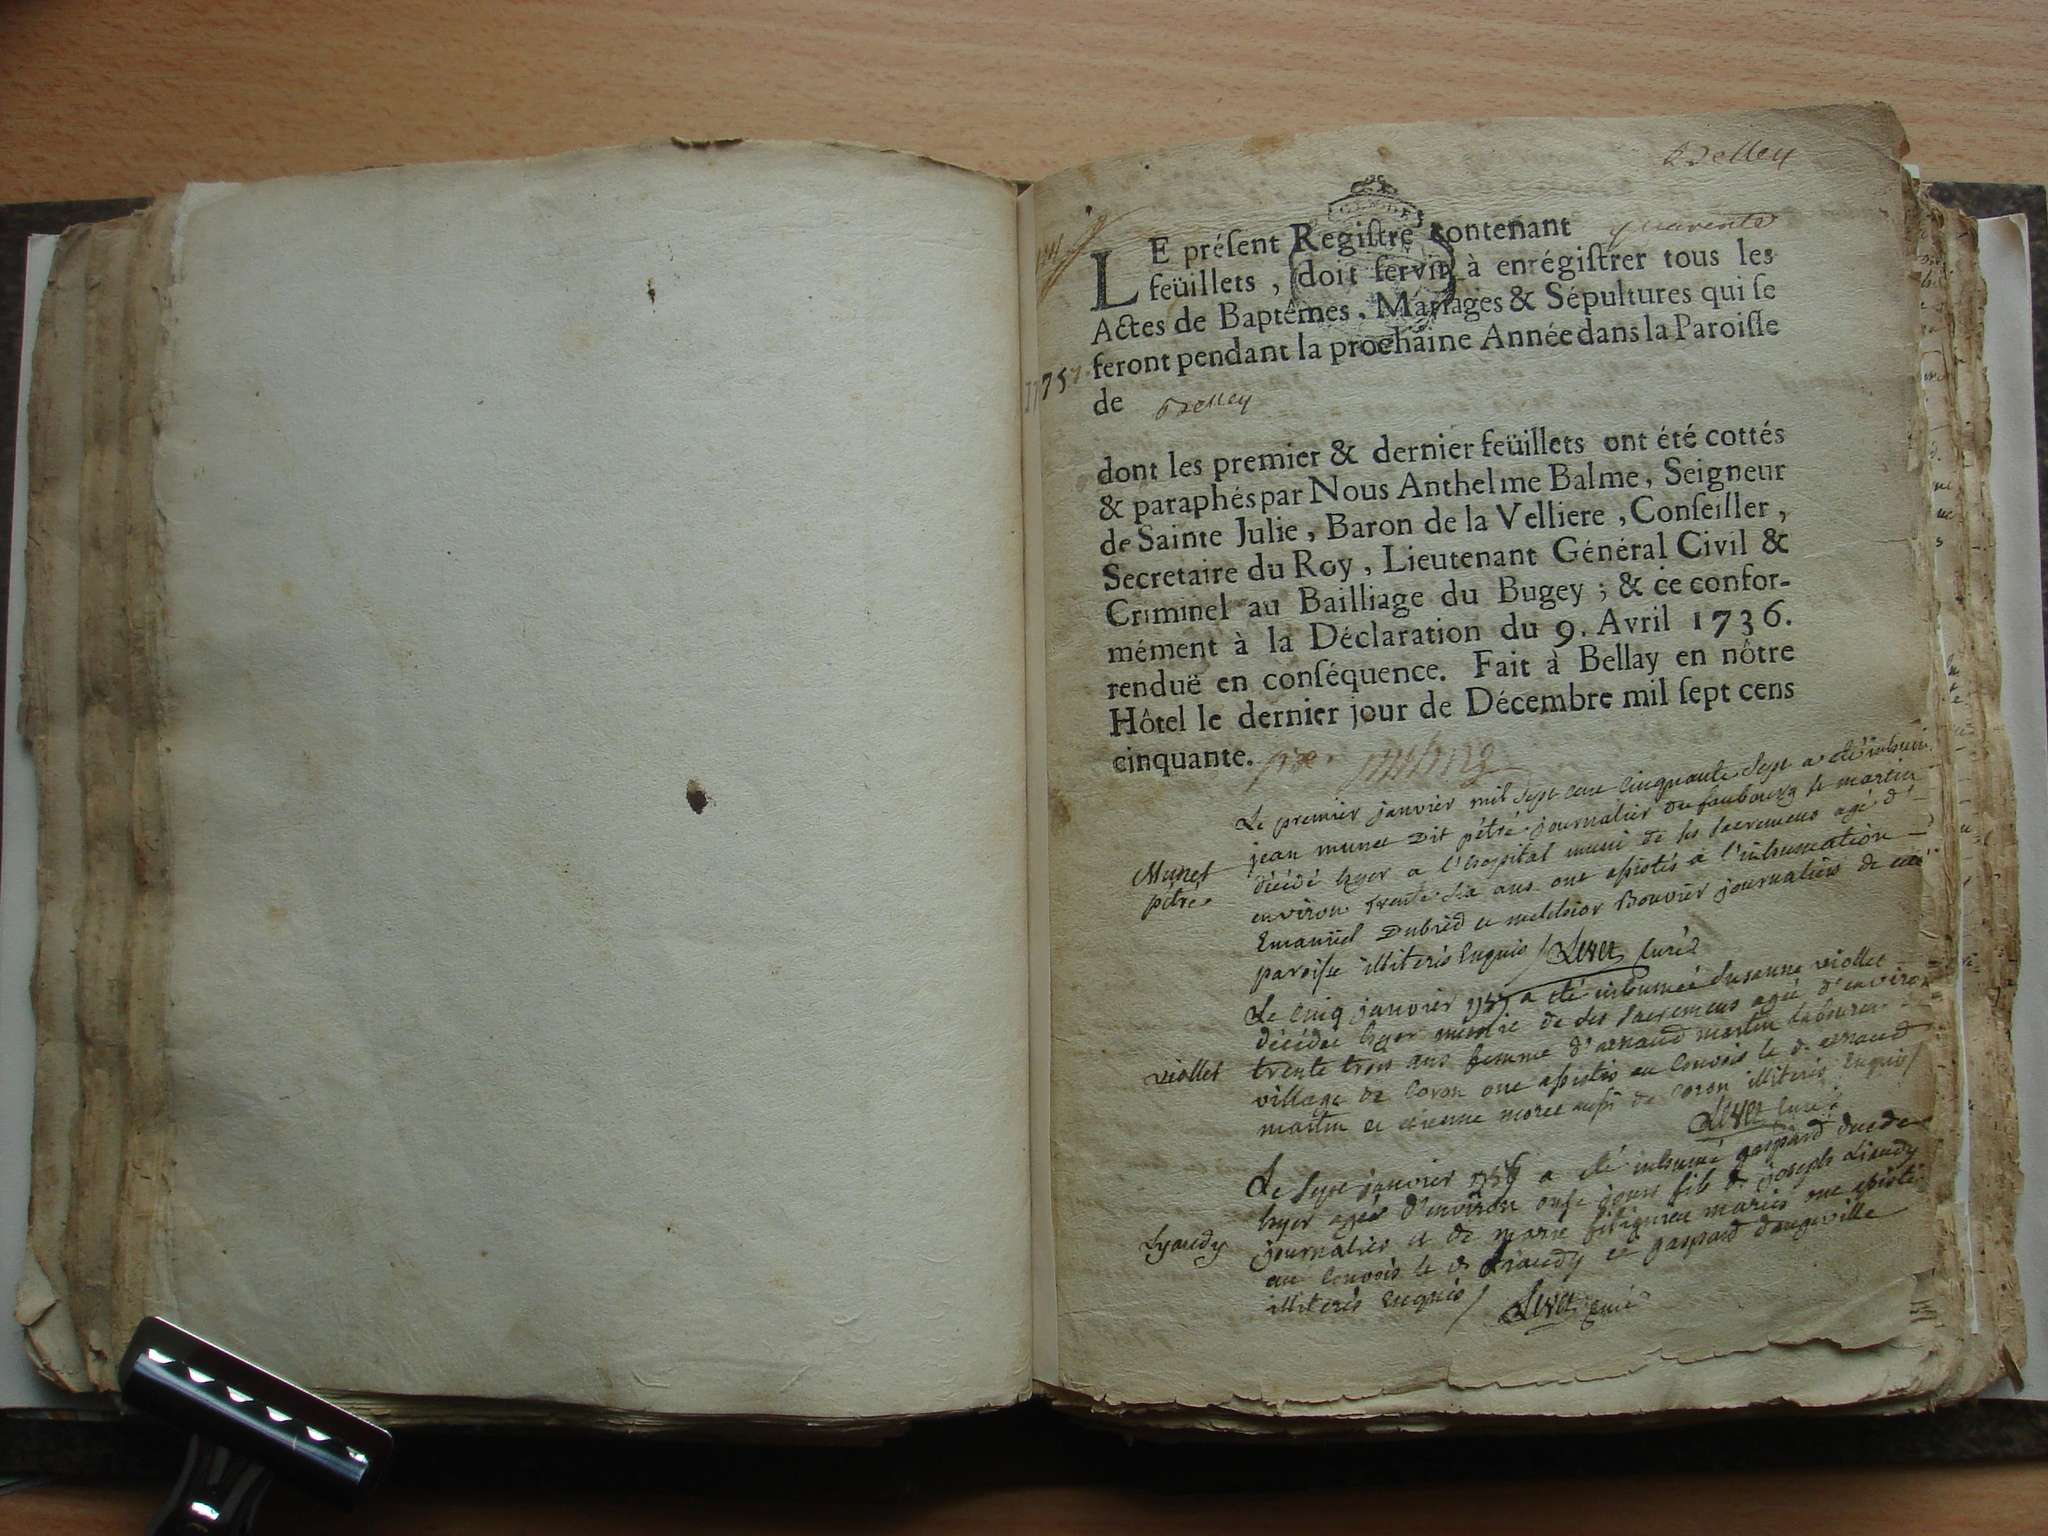 Belley
LE préſent Regiſtre contenant quarente
feüillets, doit ſervir à enrégiſtrer tous les
Actes de Baptêmes, Mariages & Sépultures qui ſe
feront pendant la prochaine Année dans la Paroiſſe
1757.
de Belley
dont les premier & dernier feüillets ont été cottés
& paraphés par Nous Anthelme Balme, Seigneur
de Sainte Julie, Baron de la Velliere, Conſeiller,
Secretaire du Roy, Lieutenant Général Civil &
Criminel au Bailliage du Bugey; & ce confor-
mément à la Déclaration du 9. Avril 1736.
renduë en conſéquence. Fait à Bellay en nôtre
Hôtel le dernier jour de Décembre mil ſept cens
cinquante.
Le premier janvier mil sept cent cinquante sept a été inhumé
jean munet dit pétré journalier du faubourg st martin
Munet
pétré
décédé hyer a l'hopital muni de ses sacremens agé d'
environ trente six ans ont assistés a l'inhumation
Emanuel Dubied et melchior Bouvier journaliers de cette
paroisse illiterés enquis / curé
Le cinq janvier 1757 a été inhumée susanne viollet
décédée hyer munie de ses sacremens agée d'environ
viollet
trente trois ans femme d'arnaud martin laboureur
village de Coron ont assistés au convois le d. arnaud
martin et etienne moret aussi de coron illiterés enquis /
curé
Le sept janvier 1757 a été inhumé gaspard
hyer agé d'environ onse jours fils de joseph Liaudy
Lyaudy
journalier et de marie mariés ont assisté
au convois le d. Liaudy et gaspard dangeville
illiterés enquis / curé